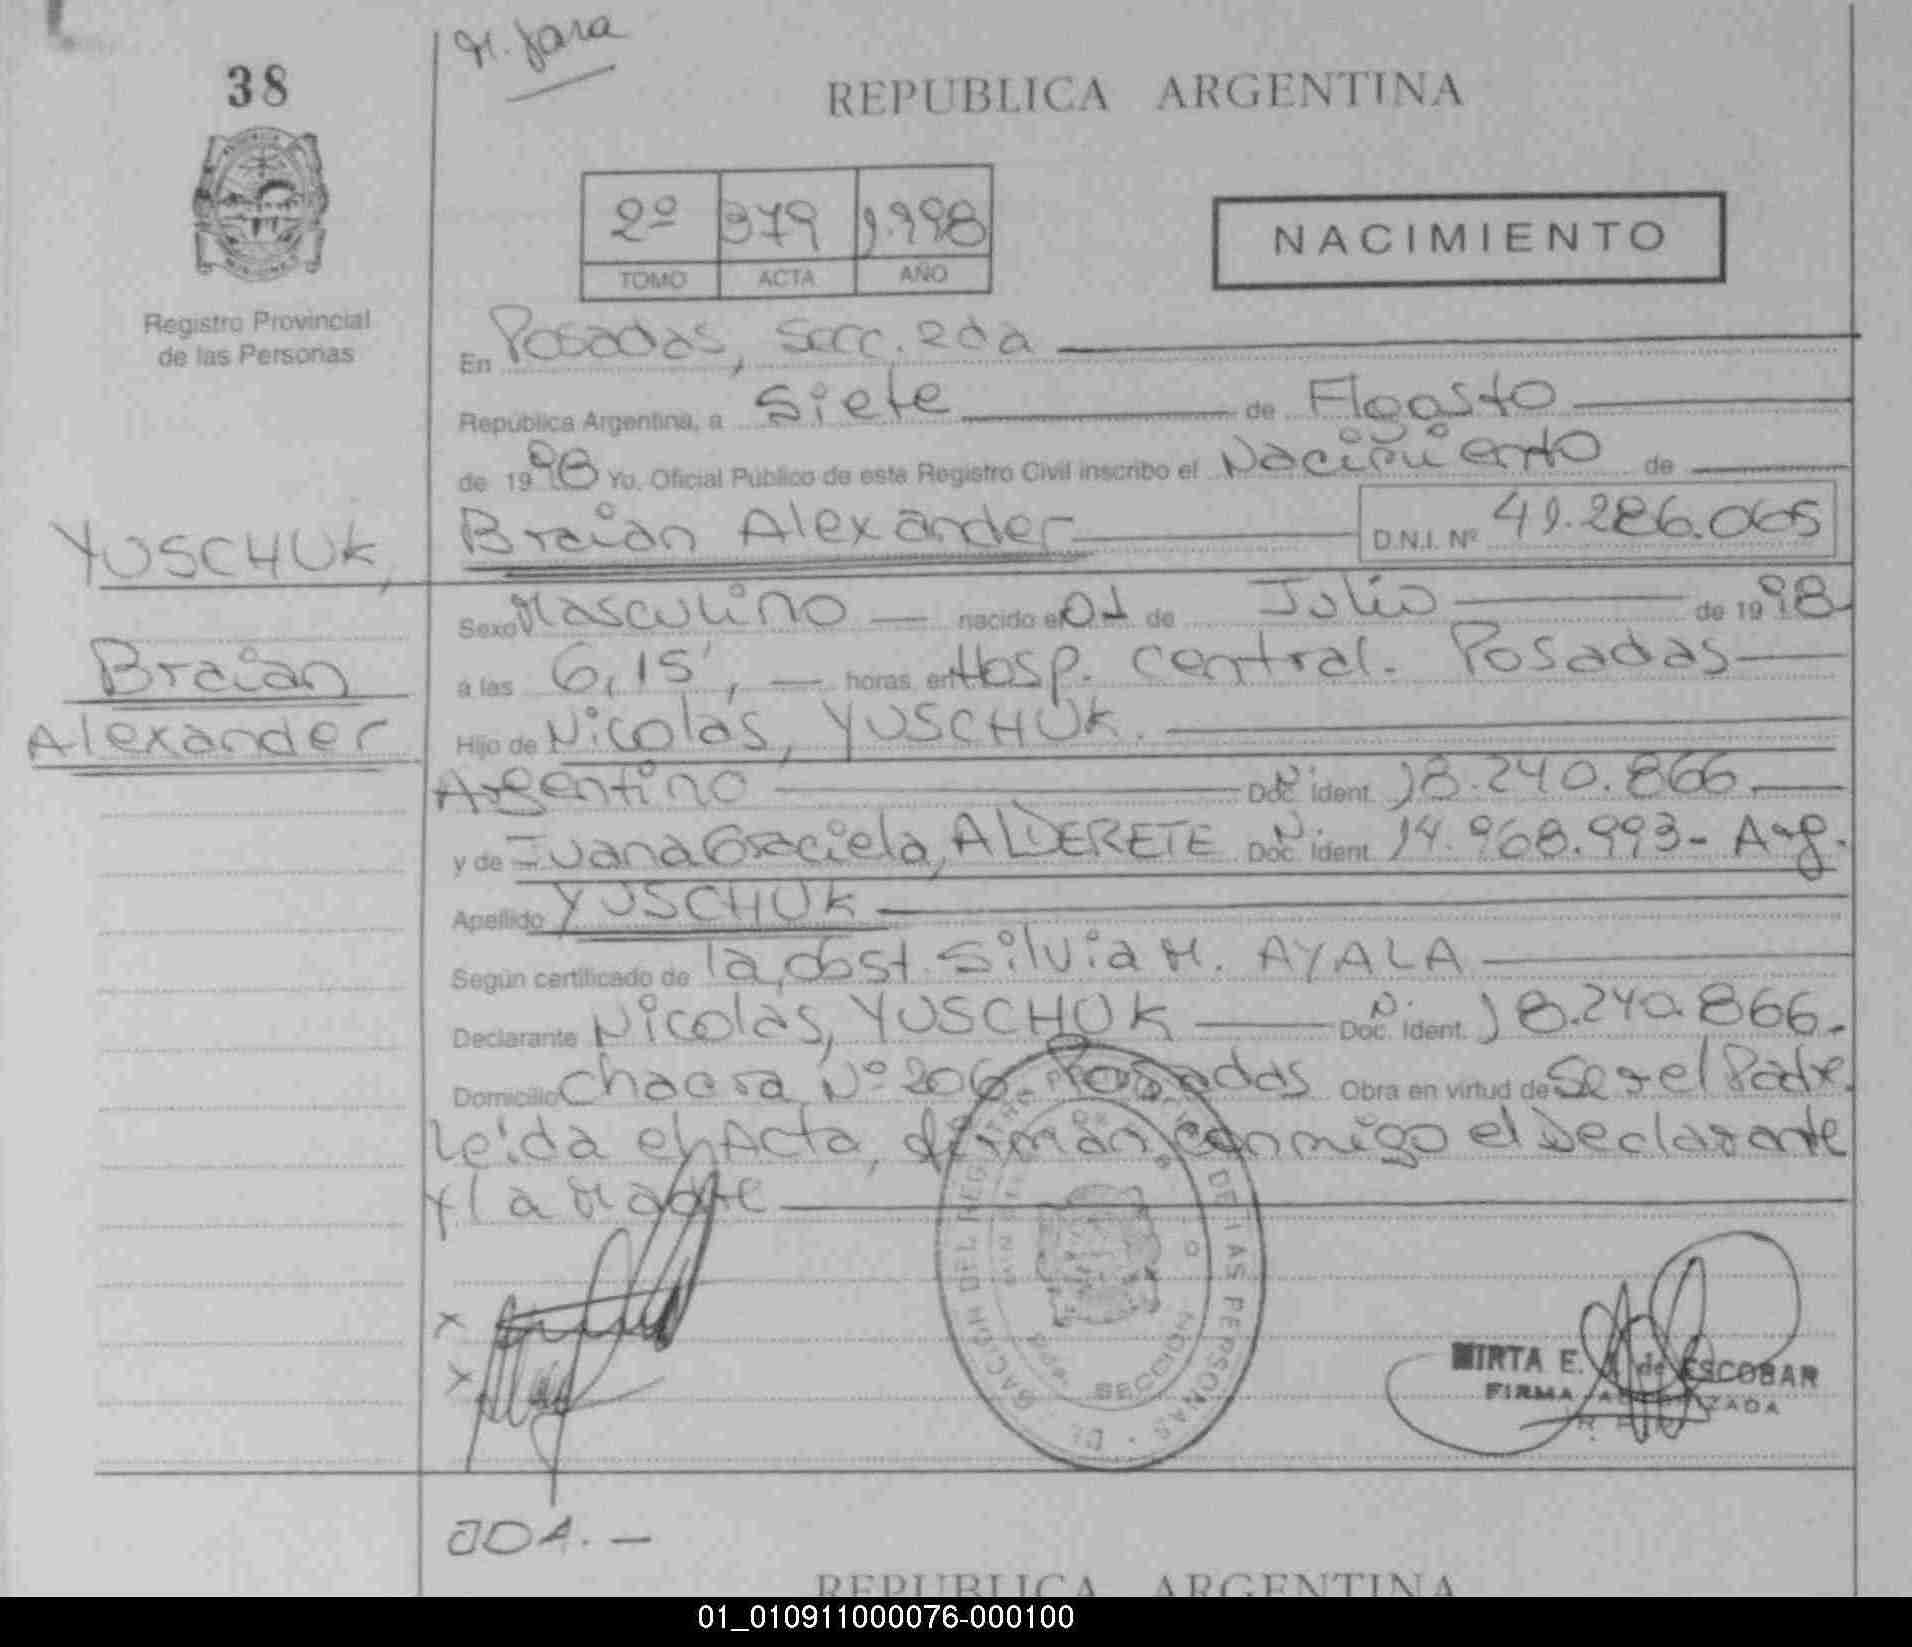 M. Jara
38
REPUBLICA ARGENTINA
2º 379 1.998
TOMO ACTA AÑO
NACIMIENTO
Registro Provincial
de las Personas
En Posadas, Secc. 2da
República Argentina, a Siete de Agosto
de 1998 Yo, Oficial Público de este Registro Civil inscribo el Nacimiento de
Braian Alexander D.N.I. Nº 41.286.065
YUSCHUK,
Braian
Alexander
Sexo Masculino nacido el 01 de Julio de 1998
a las 6,15', horas, en Hosp. Central. Posadas
Hijo de Nicolás, YUSCHUK.
Argentino Doc. Ident. N. 18.240.866
y de Juana Graciela, ALDERETE Doc. Ident. N. 14.968.993- Arg.
Apellido YUSCHUK
Según certificado de la, obst. Silvia M. AYALA
Declarante Nicolás, YUSCHUK Doc. Ident. N. 18.240.866.
Domicilio Chacra Nº 206 Posadas Obra en virtud de Ser el Padre.
Leída el Acta, firman conmigo el Declarante
y la Madre
x
x
DEL REGISTRO DE LAS PERSONAS
SECCION
MIRTA E. de ESCOBAR
FIRMA AUTORIZADA
JOA.-
REPUBLICA ARGENTINA
01_010911000076-000100